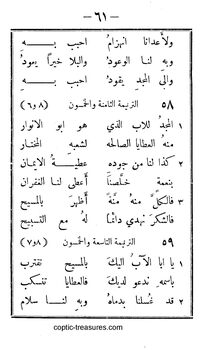 — ٦١ —
ولأعدانا انهزامُ احبب بــــهِ
وبهِ لنا الوعودُ والبلا خيرًا يعودُ
والى المجدِ يقودُ احبب بــــهِ
٥٨ الترنيمة الثامنة والخمسون (٨ و ٦)
١ المجدُ للابِ الذي هو ابو الانوار
منهُ العطايا الصالحه لشعبهِ المختار
٢ كذا لنا من جوده عطيةُ الايمان
بنعمةٍ خلَّصنا أعطى لنا الغفران
٣ فالكلُّ منهُ منَّةٌ أظهرَ بالمسيح
فالشكرَ نهدي دائمًا لهُ مع التسبيح
٥٩ الترنيمة التاسعة والخمسون (٨ و ٧)
١ يا ابا الآبُ اليكَ بالمسيح نقترب
باسمهِ ندعو لديك فالعطايا تنسكب
٢ قد غُسلنا بدماهُ وبهِ لنا سلام
coptic-treasures.com